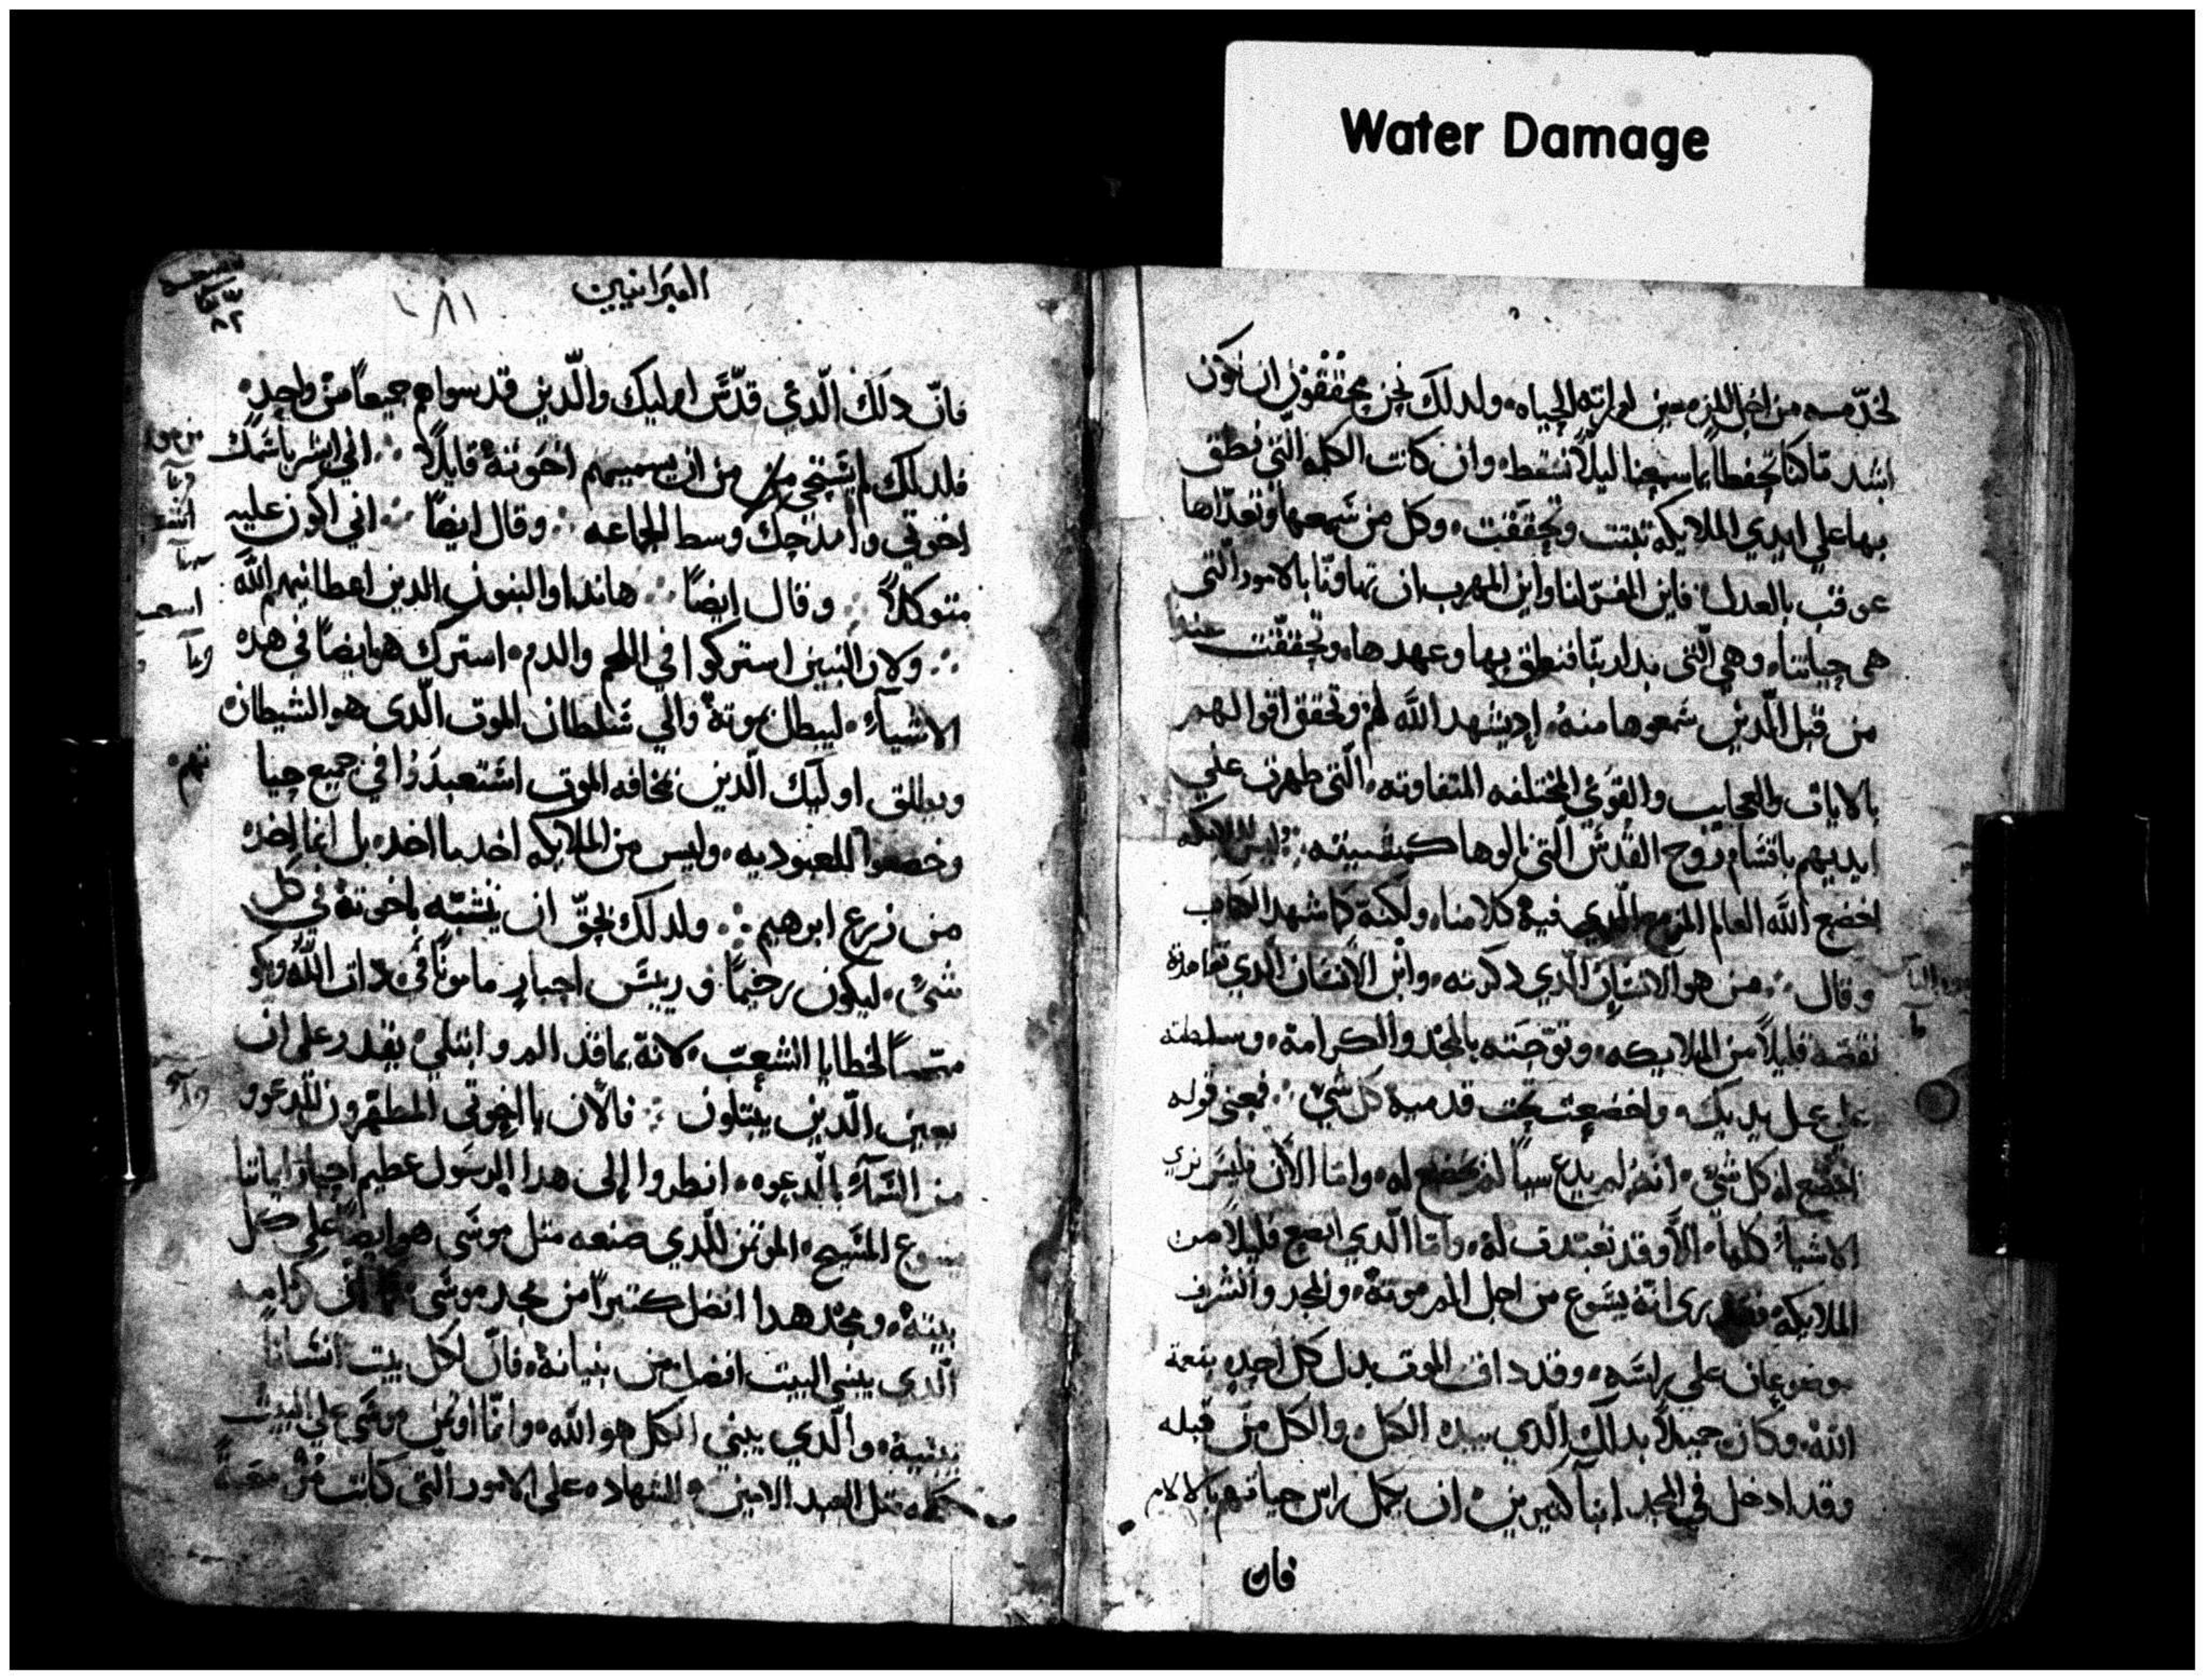 Water Damage
من اجل المزمعين لوراثه الحياه ولدلك نحن محققون ان نكون
اشد ما كنا تحفظا بما سمعنا ليلا نسقط وان كانت الكلمه التي نطق
بها على ايدي الملايكه تبتت وتحققت وكل من سمعها وتعداها
عوقب بالعدل فاين المفر لنا واين المهرب ان تهاونا بالامور التي
هي حياتنا وهي التي بدا ربنا فنطق بها وعهدها وتحققت عندنا
من قبل الدين سمعوها منه اد يشهد الله لهم وتحقق اقوالهم
بالايات والعجايب والقوى المختلفه المتفاوته التي ظهرت علي
ايديهم باقسام روح القدس التي نالوها كمشييته وليس للملايكه
اخضع الله العالم المزمع الدي فيه كلامنا ولكنه كما شهد الكتاب
وقال من هو الانسان الدي دكرته وابن الانسان الدي تعاهدته
نقصته قليلا من الملايكه وتوجته بالمجد والكرامة وسلطته
علي عمل يديك واخضعت تحت قدميه كل شي فبمعنى قوله
اخضع له كل شي انه لم يدع سيا لم يخضع له واما الان فليس نري
الاشياء كلها قد تعبدت له واما الدي اتضع قليلا من
الملايكه فقد نرى انه يسوع من اجل الم موته والمجد والشرف
موضوعان على راسه وقد داق الموت بدل كل احد بنعمة
الله وكان جميلا بدلك الدي بيده الكل والكل من قبله
وقد ادخل في المجد ابنا كثيرين ان يكمل راس حياتهم بالالام
فان
العبرانيين
١٨١
٨٢
فان دلك الدي قدس اوليك والدين قدسوا هم جميعا من واحد
فلدلك لم يستحي من ان يسميهم اخوته قايلا اني ابشر باسمك
اخوتي وامدحك وسط الجماعه وقال ايضا اني اكون عليه
متوكلا وقال ايضا هاندا والبنون الدين اعطانيهم الله
ولان البنين استركوا في اللحم والدم استرك هو ايضا في هده
الاشياء ليبطل بموته والي سلطان الموت الدى هو الشيطان
ويطلق اوليك الدين بمخافه الموت استعبدوا في جميع حيا
تهم
وخضعوا للعبوديه وليس من الملايكه اخد ما اخد بل انما اخد
من زرع ابرهيم ولدلك يحق ان يتشبه باخوته في كل
شي ليكون رحيما وريس احبار مامونا في دات الله ويكو
لخطايا الشعب لانه بما قد الم وابتلي يقدر على ان
يعين الدين يبتلون فالان يا اخوتي المطهرون المدعوون
من السماء بالدعوه انظروا إلى هدا الرسول عظيم احبار ايماننا
يسوع المسيح الموتمن للدي صنعه متل موسى هو ايضا على كل
بيته ومجد هدا افضل كتيرا من مجد موسى كما ان كرامه
الدى يبني البيت افضل من بنيانه فان لكل بيت انسانا
يبنيه والدي يبني الكل هو الله وانما اوتمن موسى على البيت
كله متل العبد الامين للشهاده على الامور التي كانت